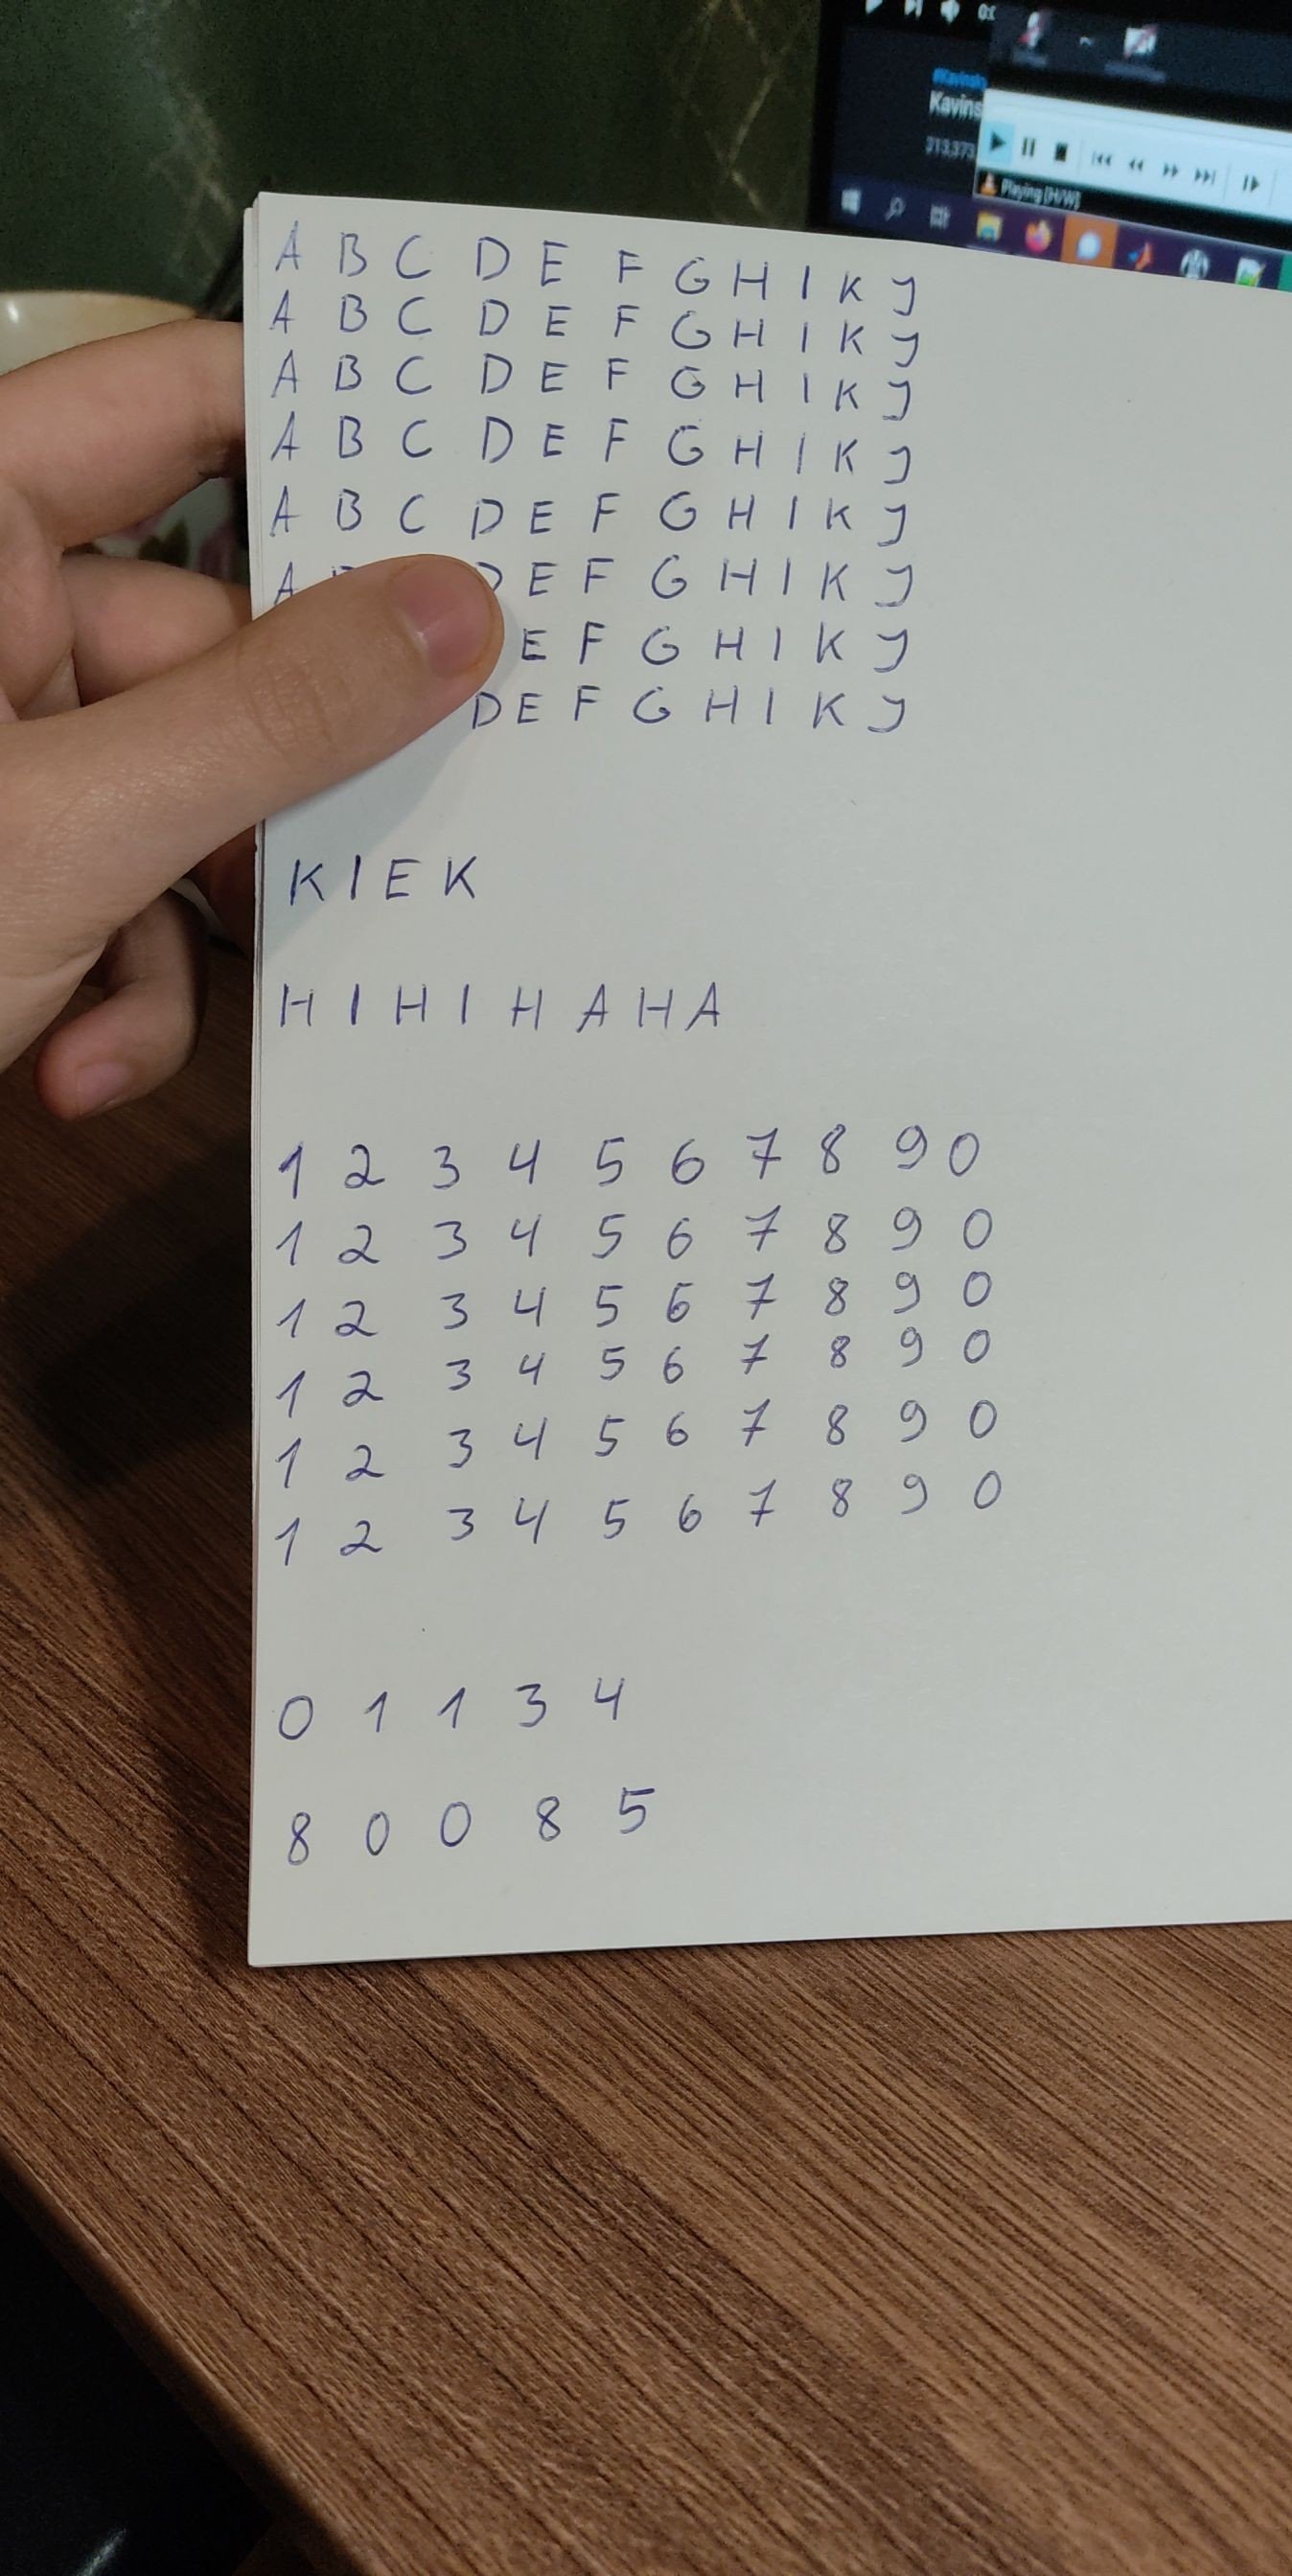 #Kavinsky
Kavins
213,373
Playing [H/W]
A B C D E F G H I K J
A B C D E F G H I K J
A B C D E F G H I K J
A B C D E F G H I K J
A B C D E F G H I K J
A D E F G H I K J
E F G H I K J
D E F G H I K J
K I E K
H I H I H A H A
1 2 3 4 5 6 7 8 9 0
1 2 3 4 5 6 7 8 9 0
1 2 3 4 5 6 7 8 9 0
1 2 3 4 5 6 7 8 9 0
1 2 3 4 5 6 7 8 9 0
1 2 3 4 5 6 7 8 9 0
0 1 1 3 4
8 0 0 8 5